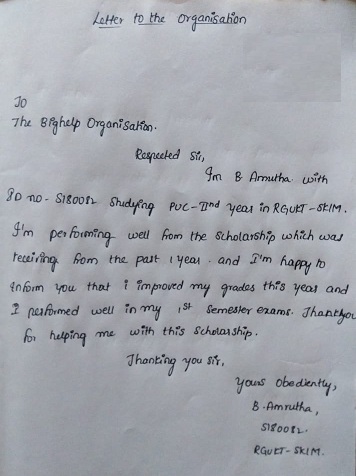 Letter to the Organisation
To
The Bighelp Organisation.
Respected Sir,
I'm B Amrutha with
ID no - S180082 Studying PUC-IInd year in RGUKT-SKLM.
I'm performing well from the scholarship which was
receiving from the past 1 year. and I'm happy to
inform you that i improved my grades this year and
I performed well in my 1st Semester exams. Thankyou
for helping me with this Scholarship.
Thanking you Sir,
yours Obediently,
B. Amrutha,
S180082.
RGUKT-SKLM.